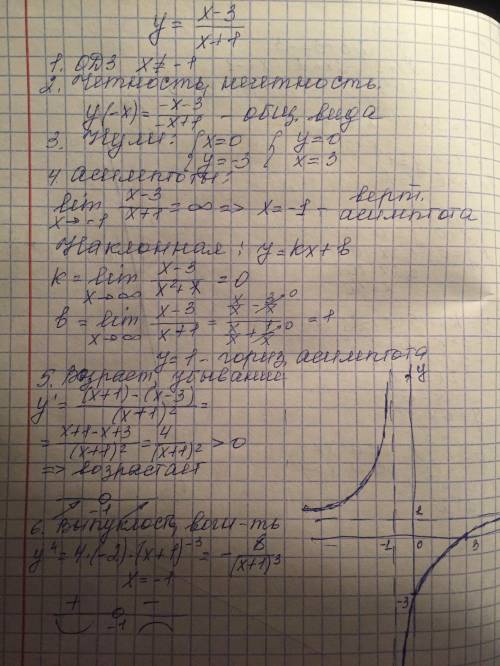 y = (x-3)/(x+1)
1. ОДЗ x ≠ -1
2. Четность, нечетность.
y(-x) = (-x-3)/(-x+1) - общ. вида
3. Нули: { x=0 y=-3 { y=0 x=3
4 асимптоты:
lim x→-1 (x-3)/(x+1) = ∞ => x=-1 - верт. асимптота
Наклонная: y=kx+b
k = lim x→∞ (x-3)/(x²+x) = 0
b = lim x→∞ (x-3)/(x+1) = (x/x - 3/x→0)/(x/x + 1/x→0) = 1
y=1 - гориз. асимптота
5. Возраст, убывание
y' = ((x+1)-(x-3))/(x+1)² =
= (x+1-x+3)/(x+1)² = 4/(x+1)² > 0
=> возрастает
-1
6. Выпуклость, вогн-ть
y" = 4·(-2)·(x+1)⁻³ = - 8/(x+1)³
x=-1
+ -
-1
y
1
-1 0 3
-3